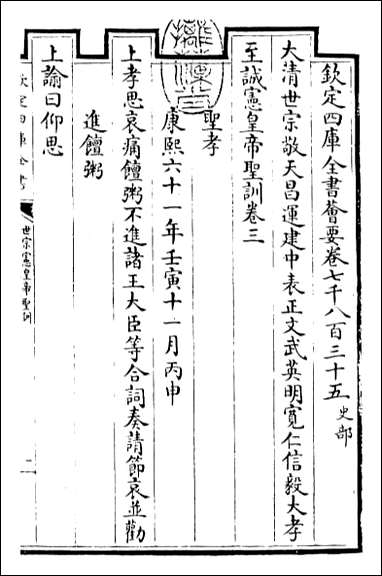 欽定四庫全書薈要卷七千八百三十五 史部
大清世宗敬天昌運建中表正文武英明寬仁信毅大孝
至誠憲皇帝聖訓卷三
聖孝
康熙六十一年壬寅十一月丙申
上孝思哀痛饘粥不進諸王大臣等合詞奏請節哀並勸
進饘粥
上諭曰仰思
欽定四庫全書
世宗憲皇帝聖訓